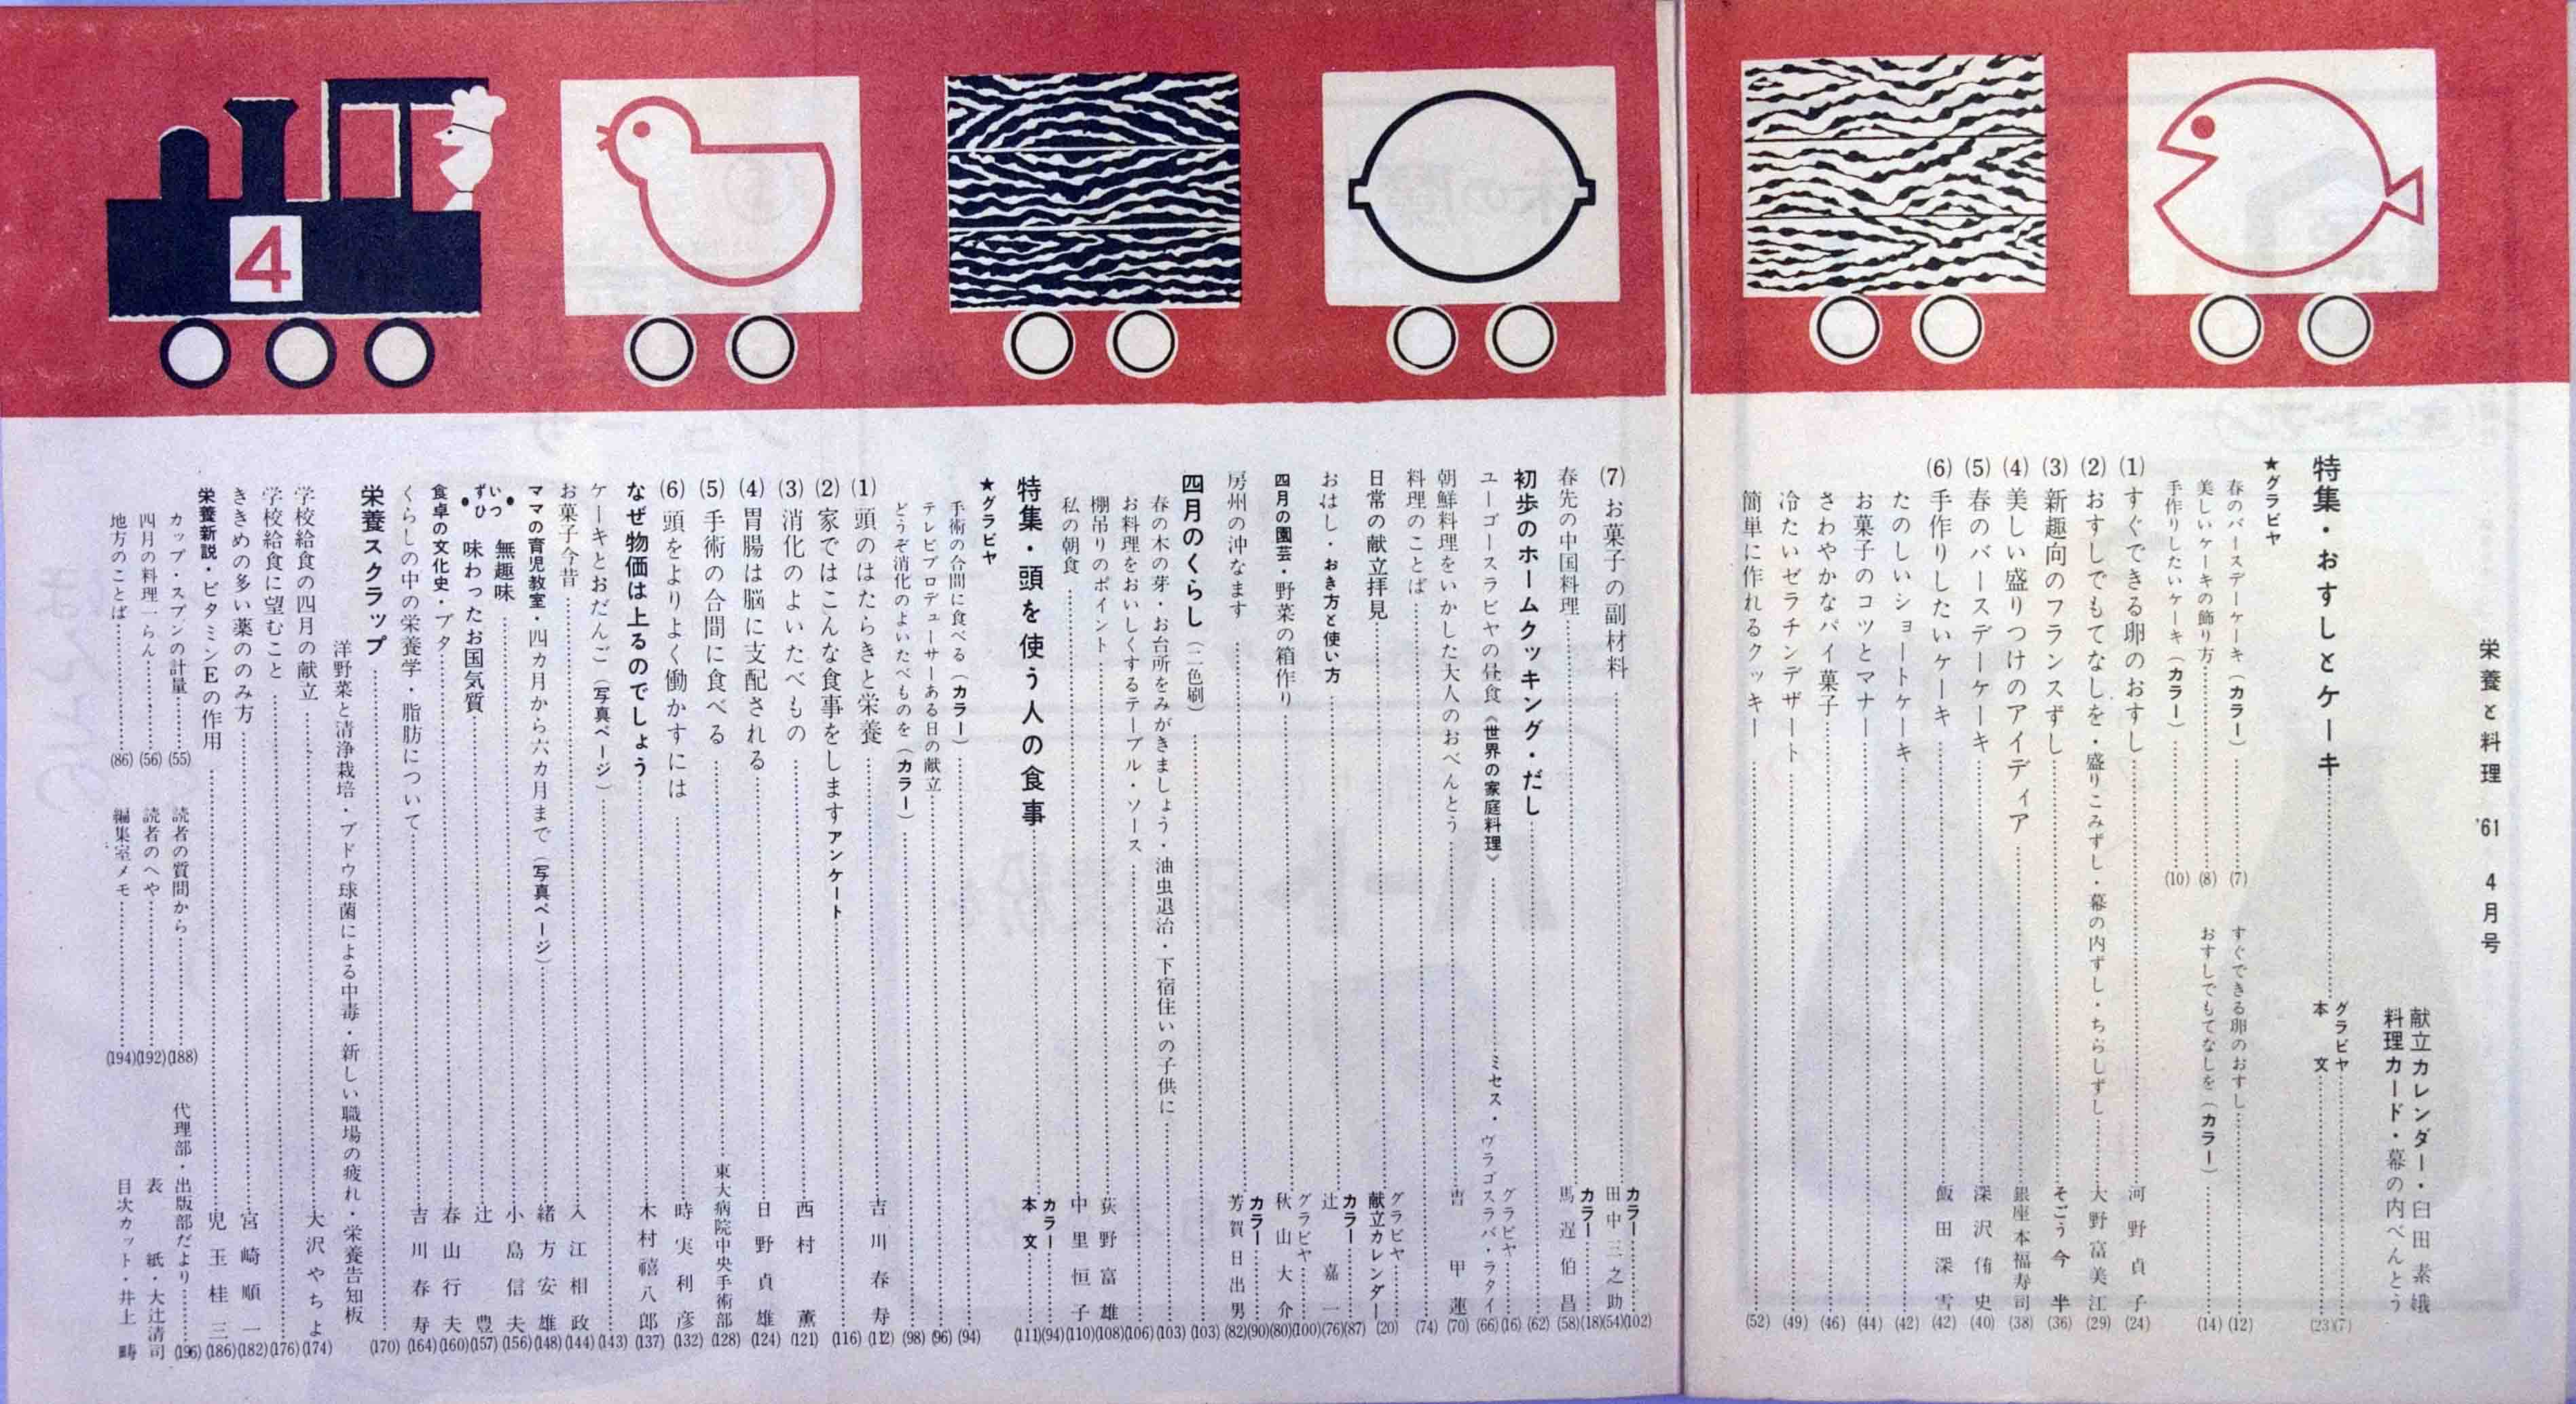 栄養と料理 '61 4月号
献立カレンダー・臼田素娥
料理カード・幕の内べんとう
特集・おすしとケーキ グラビヤ (7)
本文 (23)
★グラビヤ
春のバースデーケーキ(カラー) (7)
美しいケーキの飾り方 (8)
手作りしたいケーキ(カラー) (10)
すぐできる卵のおすし (12)
おすしでもてなしを(カラー) (14)
(1) すぐできる卵のおすし 河野貞子 (24)
(2) おすしでもてなしを・盛りこみずし・幕の内ずし・ちらしずし 大野富美江 (29)
(3) 新趣向のフランスずし そごう 今半 (36)
(4) 美しい盛りつけのアイディア 銀座本福寿司 (38)
(5) 春のバースデーケーキ 深沢侑史 (40)
(6) 手作りしたいケーキ 飯田深雪 (42)
たのしいショートケーキ (42)
お菓子のコツとマナー (44)
さわやかなパイ菓子 (46)
冷たいゼラチンデザート (49)
簡単に作れるクッキー (52)
(7) お菓子の副材料 カラー (102)
田中三之助 (54)
春先の中国料理 カラー (18)
馬遅伯昌 (58)
初歩のホームクッキング・だし (62)
ユーゴースラビヤの昼食《世界の家庭料理》 グラビヤ (16)
ミセス・ヴラゴスラバ・ラタイ (66)
朝鮮料理をいかした大人のおべんとう 吉甲蓮 (70)
料理のことば (74)
日常の献立拝見 グラビヤ
献立カレンダー (20)
おはし・おき方と使い方 カラー (87)
辻嘉一 (76)
四月の園芸・野菜の箱作り グラビヤ (100)
秋山大介 (80)
房州の沖なます カラー (90)
芳賀日出男 (82)
四月のくらし(二色刷) (103)
春の木の芽・お台所をみがきましょう・油虫退治・下宿住いの子供に (103)
お料理をおいしくするテーブル・ソース (106)
棚吊りのポイント 荻野富雄 (108)
私の朝食 中里恒子 (110)
特集・頭を使う人の食事 カラー (94)
本文 (111)
★グラビヤ
手術の合間に食べる(カラー) (94)
テレビプロデューサーある日の献立 (96)
どうぞ消化のよいたべものを(カラー) (98)
(1) 頭のはたらきと栄養 吉川春寿 (112)
(2) 家ではこんな食事をします アンケート (116)
(3) 消化のよいたべもの 西村薫 (121)
(4) 胃腸は脳に支配される 日野貞雄 (124)
(5) 手術の合間に食べる 東大病院中央手術部 (128)
(6) 頭をよりよく働かすには 時実利彦 (132)
なぜ物価は上るのでしょう 木村禧八郎 (137)
ケーキとおだんご(写真ページ) (143)
お菓子今昔 入江相政 (144)
ママの育児教室・四カ月から六カ月まで(写真ページ) 緒方安雄 (148)
いつ・ずひ 無趣味 小島信夫 (156)
味わったお国気質 辻豊 (157)
食卓の文化史・ブタ 春山行夫 (160)
くらしの中の栄養学・脂肪について 吉川春寿 (164)
栄養スクラップ (170)
洋野菜と清浄栽培・ブドウ球菌による中毒・新しい職場の疲れ・栄養告知板
学校給食の四月の献立 大沢やちよ (174)
学校給食に望むこと (176)
ききめの多い薬ののみ方 宮崎順一 (182)
栄養新説・ビタミンEの作用 児玉桂三 (186)
カップ・スプンの計量 (55)
四月の料理一らん (56)
地方のことば (86)
読者の質問から (188)
読者のへや (192)
編集室メモ (194)
代理部・出版部だより (196)
表紙・大辻清司
目次カット・井上疇
4